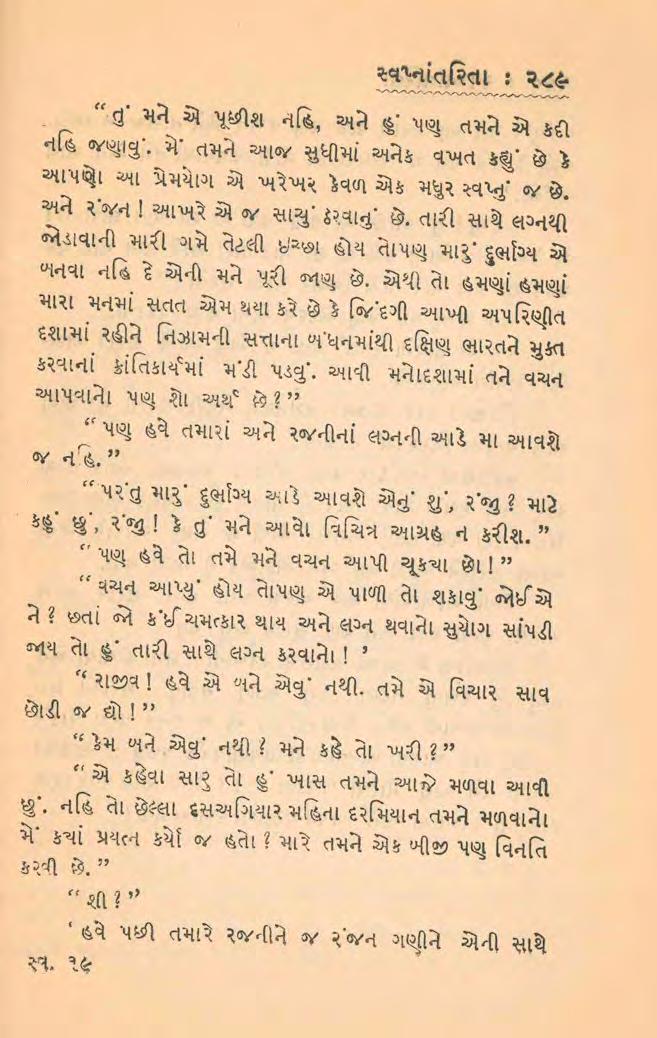 સ્વપ્નાંતરિતા : ૨૮૯
“ તું મને એ પૂછીશ નહિ, અને હું પણ તમને એ કદી
નહિ જણાવું. મેં તમને આજ સુધીમાં અનેક વખત કહ્યું છે કે
આપણો આ પ્રેમયોગ એ ખરેખર કેવળ એક મધુર સ્વપ્નું જ છે.
અને રંજન ! આખરે એ જ સાચું ઠરવાનું છે. તારી સાથે લગ્નથી
જોડાવાની મારી ગમે તેટલી ઇચ્છા હોય તોપણ મારું દુર્ભાગ્ય એ
બનવા નહિ દે એની મને પૂરી જાણ છે. એથી તો હમણાં હમણાં
મારા મનમાં સતત એમ થયા કરે છે કે જિંદગી આખી અપરિણીત
દશામાં રહીને નિઝામની સત્તાના બંધનમાંથી દક્ષિણ ભારતને મુક્ત
કરવાનાં ક્રાંતિકાર્યમાં મંડી પડવું. આવી મનોદશામાં તને વચન
આપવાનો પણ શો અર્થ છે ? ”
“ પણ હવે તમારાં અને રજનીનાં લગ્નની આડે મા આવશે
જ નહિ. ”
“ પરંતુ મારું દુર્ભાગ્ય આડે આવશે એનું શું, રંજુ ? માટે
કહું છું, રંજુ ! કે તું મને આવો વિચિત્ર આગ્રહ ન કરીશ. ”
“ પણ હવે તો તમે મને વચન આપી ચૂકયા છો ! ”
“ વચન આપ્યું હોય તોપણ એ પાળી તો શકાવું જોઈએ
ને ? છતાં જો કંઈ ચમત્કાર થાય અને લગ્ન થવાનો સુયોગ સાંપડી
જાય તો હું તારી સાથે લગ્ન કરવાનો ! ’
“ રાજીવ ! હવે એ બને એવું નથી. તમે એ વિચાર સાવ
છોડી જ દ્યો ! ”
“ કેમ બને એવું નથી ? મને કહે તો ખરી ? ”
“ એ કહેવા સારુ તો હું ખાસ તમને આજે મળવા આવી
છું. નહિ તો છેલ્લા દસઅગિયાર મહિના દરમિયાન તમને મળવાનો
મેં કયાં પ્રયત્ન કર્યો જ હતો ? મારે તમને એક બીજી પણ વિનતિ
કરવી છે. ”
“ શી ? ”
‘ હવે પછી તમારે રજનીને જ રંજન ગણીને એની સાથે
સ્વ. ૧૯